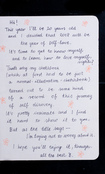 Hi!
This year I'll be 30 years old
and I decided that 2018 will be
the year of self-love.
It's time to get to know myself
and to learn how to like myself.
That's why my sketches
(which at first had to be just
a normal illustration)
turned out to be some kind
of a record of this journey
of self discovery.
It's pretty intimate and I find
hard to show it to you.
But as the title says -
I'm trying not to worry about it.
I hope you'll enjoy it,
all the best :)